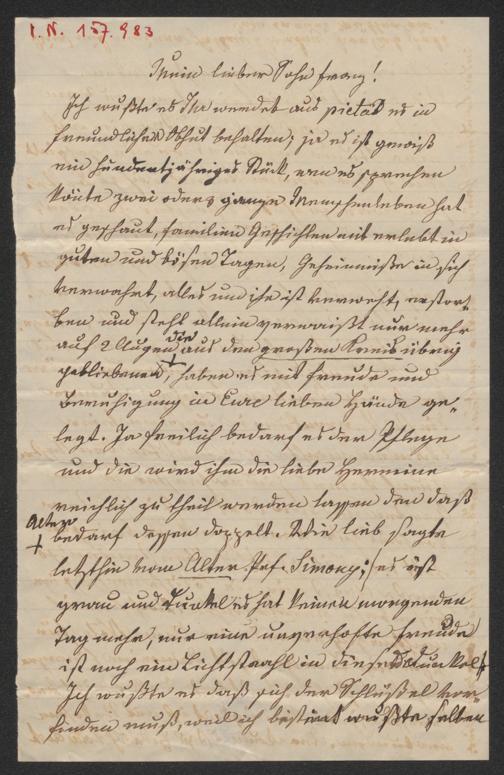 I. N. 157.983
Mein lieber Sohn Franz!
Ich wußte es Ihr werdet aus pietät es in
freundlicher Obhut behalten; ja es ist gewiß
ein hundertjähriges Stück, wen es sprechen
könte zwei oder 3 ganze Menschenleben hat
es geschaut, familien Geschichten mit erlebt in
guten und bösen Tagen, Geheimniße in sich
verwahrt, alles um ihr ist verweht, erstor-
ben und steht allein verwaist nur mehr
auf 2 Augen die aus den großen Kreis übrig
geblieben, haben es mit Freude und
Beruhigung in Eure lieben Hände ge-
legt. Ja freilich bedarf es der Pflege
und die wird ihm die liebe Hermine
reichlich zu theil werden lassen den daß
Alter
bedarf dessen doppelt. Wie lieb sagte
letsthin vom Alter Prf. Simony; es ist
grau und dunkel es hat keinen morgenden
Tag mehr, nur eine unverhofte Freude
ist noch ein Lichtstrahl in diese dunkel
Ich wußte es daß sich der Schlüßel vor-
finden muß, weil ich bestimt wußte selben